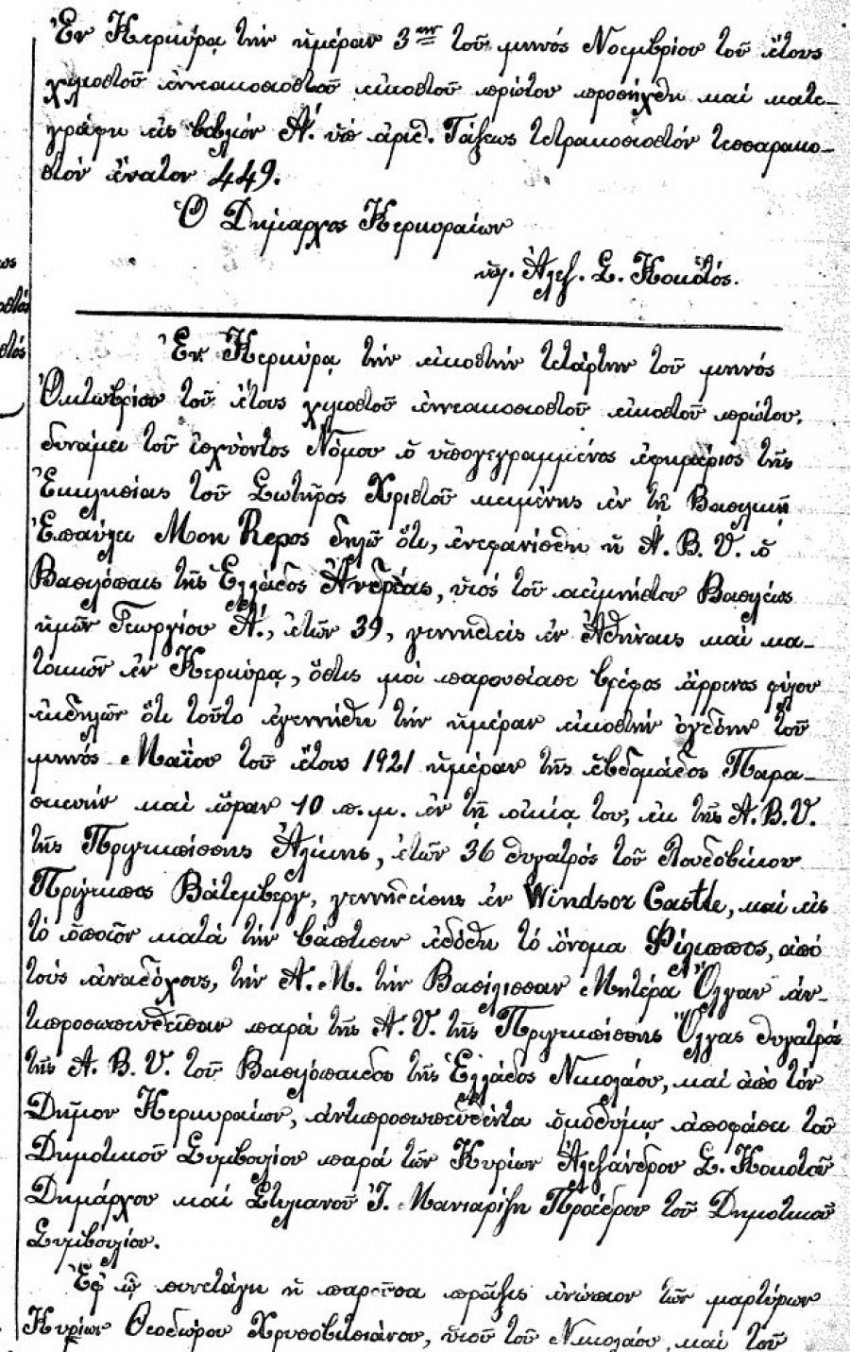 Ἐν Κερκύρᾳ τὴν ἡμέραν 3ην τοῦ μηνός Νοεμβρίου τοῦ ἔτους
χιλιοστοῦ ἐννεακοσιοστοῦ εἰκοστοῦ πρώτου προσήχθη καί κατε-
γράφη εἰς βιβλίον Α΄. ὑπό ἀριθ. Τάξεως τετρακοσιοστόν τεσσαρακο-
στόν ἔνατον 449.
Ὁ Δήμαρχος Κερκυραίων
ὑπ. Ἀλεξ. Σ. Κοκοτός.
Ἐν Κερκύρᾳ τήν εἰκοστήν τετάρτην τοῦ μηνός
Ὀκτωβρίου τοῦ ἔτους χιλιοστοῦ ἐννεακοσιοστοῦ εἰκοστοῦ πρώτου,
δυνάμει τοῦ ἰσχύοντος Νόμου ὁ ὑπογεγραμμένος ἐφημέριος τῆς
Ἐκκλησίας τοῦ Σωτῆρος Χριστοῦ κειμένης ἐν τῇ Βασιλικῇ
Ἐπαύλει Mon Repos δηλῶ ὅτι, ἐνεφανίσθη ἡ Α. Β. Υ. ὁ
Βασιλόπαις τῆς Ἑλλάδος Ἀνδρέας, υἱός τοῦ ἀειμνήστου Βασιλέως
ἡμῶν Γεωργίου Α΄., ἐτῶν 39, γεννηθείς ἐν Ἀθήναις καί κα-
τοικῶν ἐν Κερκύρᾳ, ὅστις μοί παρουσίασε βρέφος ἄρρενος φύλου
ἐκδηλῶν ὅτι τοῦτο ἐγεννήθη τήν ἡμέραν εἰκοστήν ὀγδόην τοῦ
μηνός Μαΐου τοῦ ἔτους 1921 ἡμέραν τῆς ἑβδομάδος Παρα-
σκευήν καί ὥραν 10 π.μ. ἐν τῇ οἰκίᾳ του, ἐκ τῆς Α.Β.Υ.
τῆς Πριγκιπίσσης Ἀλίκης, ἐτῶν 36 θυγατρός τοῦ Λουδοβίκου
Πρίγκιπος Βάτεμβεργ, γεννηθείσης ἐν Windsor Castle, καί εἰς
τό ὁποῖον κατά τήν βάπτισιν ἐδόθη τό ὄνομα Φίλιππος, ἀπό
τούς ἀναδόχους, τήν Α.Μ. τήν Βασίλισσαν Μητέρα Ὄλγαν ἀν-
τιπροσωπευθεῖσαν παρά τῆς Α.Υ. τῆς Πριγκιπίσσης Ὄλγας θυγατρός
τῆς Α. Β. Υ. τοῦ Βασιλόπαιδος τῆς Ἑλλάδος Νικολάου, καί ἀπό τόν
Δῆμον Κερκυραίων, ἀντιπροσωπευθέντα ὁμοθύμῳ ἀποφάσει τοῦ
Δημοτικοῦ Συμβουλίου παρά τῶν Κυρίων Ἀλεξάνδρου Σ. Κοκοτοῦ
Δημάρχου καί Στυλιανοῦ Ἰ. Μανιαρίζη Προέδρου τοῦ Δημοτικοῦ
Συμβουλίου.
Ἐφ' ᾧ συνετάγη ἡ παροῦσα πρᾶξις ἐνώπιον τῶν μαρτύρων
Κυρίων Θεοδώρου Χρυσοβιτσιάνου, υἱοῦ τοῦ Νικολάου, καί τοῦ